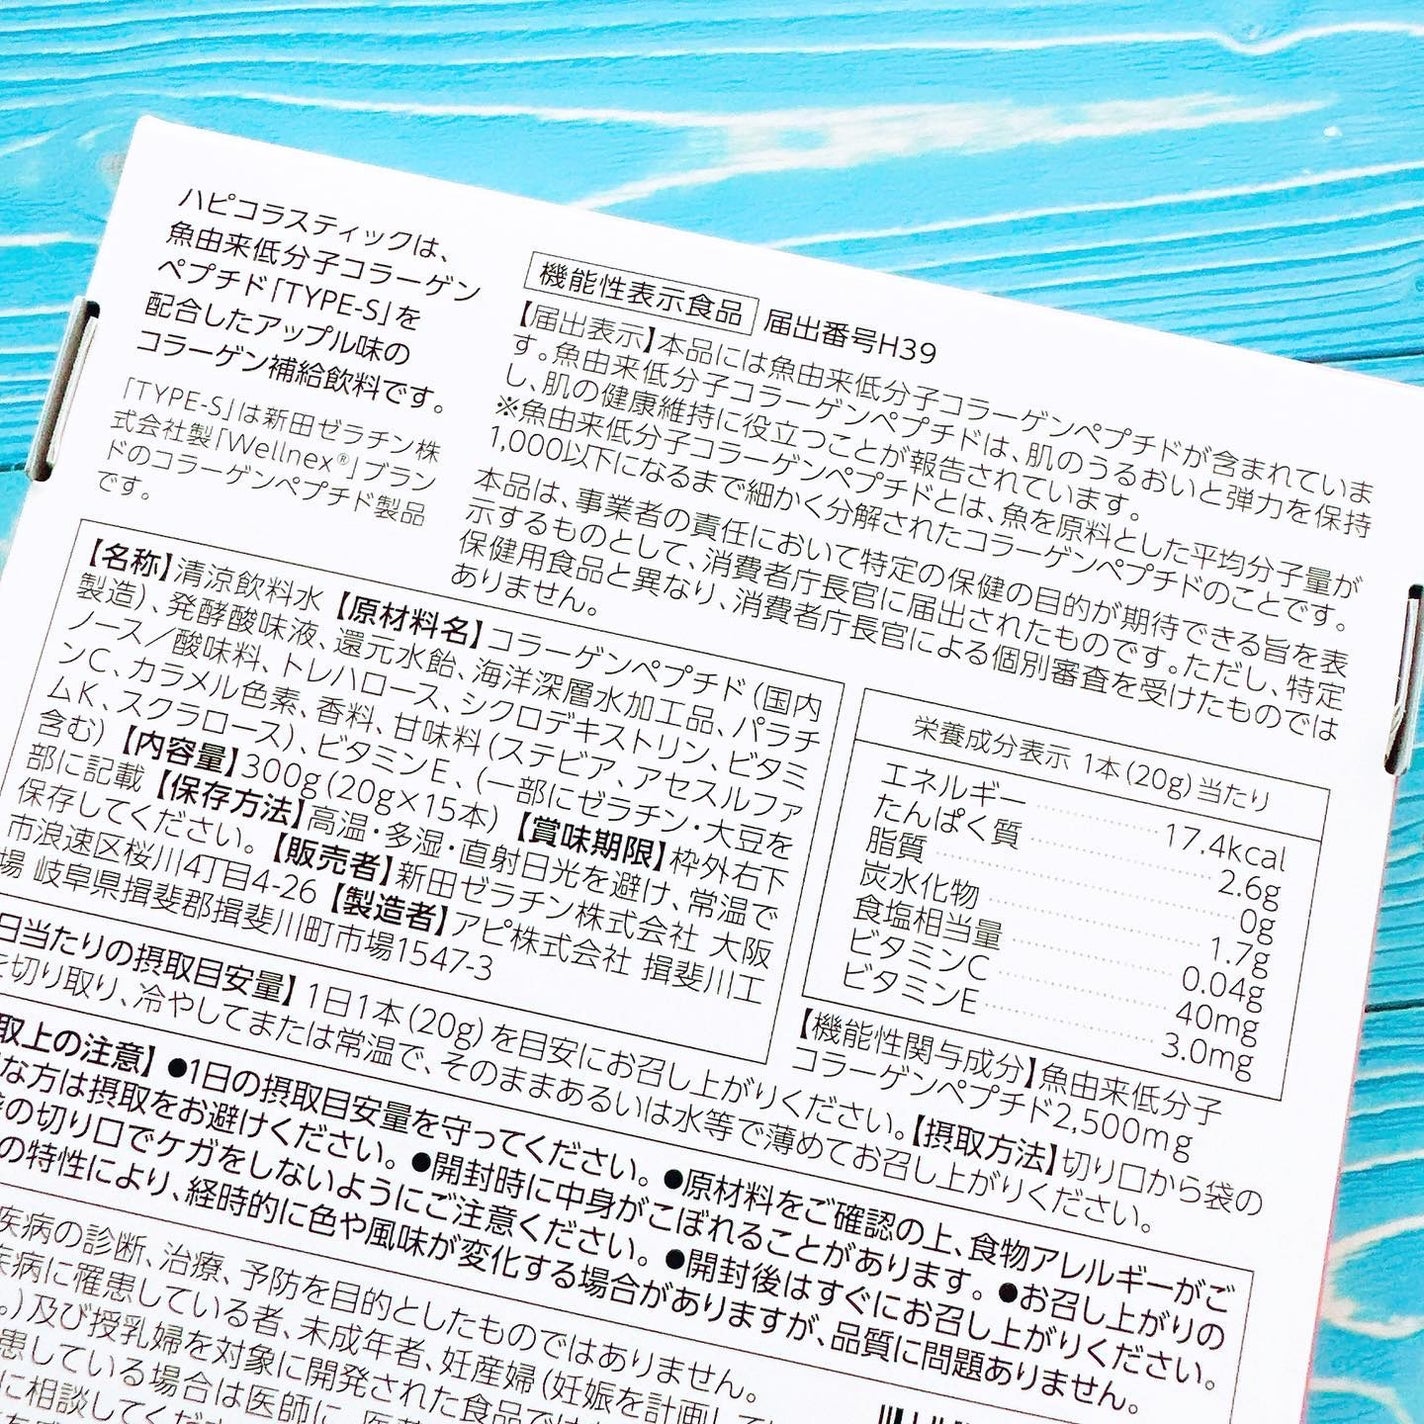 ハピコラスティックは、
魚由来低分子コラーゲン
ペプチド「TYPE-S」を
配合したアップル味の
コラーゲン補給飲料です。
「TYPE-S」は新田ゼラチン株
式会社製「Wellnex®」ブラン
ドのコラーゲンペプチド製品
です。
機能性表示食品 届出番号H39
【届出表示】本品には魚由来低分子コラーゲンペプチドが含まれていま
す。魚由来低分子コラーゲンペプチドは、肌のうるおいと弾力を保持
し、肌の健康維持に役立つことが報告されています。
※魚由来低分子コラーゲンペプチドとは、魚を原料とした平均分子量が
1,000以下になるまで細かく分解されたコラーゲンペプチドのことです。
本品は、事業者の責任において特定の保健の目的が期待できる旨を表
示するものとして、消費者庁長官に届出されたものです。ただし、特定
保健用食品と異なり、消費者庁長官による個別審査を受けたものでは
ありません。
【名称】清涼飲料水【原材料名】コラーゲンペプチド(国内
製造)、発酵酸味液、還元水飴、海洋深層水加工品、パラチ
ノース/酸味料、トレハロース、シクロデキストリン、ビタミ
ンC、カラメル色素、香料、甘味料(ステビア、アセスルファ
ムK、スクラロース)、ビタミンE、(一部にゼラチン・大豆を
含む)【内容量】300g(20g×15本)【賞味期限】枠外右下
部に記載【保存方法】高温・多湿・直射日光を避け、常温で
保存してください。【販売者】新田ゼラチン株式会社 大阪
市浪速区桜川4丁目4-26【製造者】アピ株式会社 揖斐川工
場 岐阜県揖斐郡揖斐川町市場1547-3
栄養成分表示 1本(20g)当たり
エネルギー 17.4kcal
たんぱく質 2.6g
脂質 0g
炭水化物 1.7g
食塩相当量 0.04g
ビタミンC 40mg
ビタミンE 3.0mg
【機能性関与成分】魚由来低分子
コラーゲンペプチド2,500mg
日当たりの摂取目安量】1日1本(20g)を目安にお召し上がりください。【摂取方法】切り口から袋の
を切り取り、冷やしてまたは常温で、そのままあるいは水等で薄めてお召し上がりください。
取上の注意】●1日の摂取目安量を守ってください。●原材料をご確認の上、食物アレルギーがご
な方は摂取をお避けください。●開封時に中身がこぼれることがあります。●お召し上がりの
の切り口でケガをしないようにご注意ください。●開封後はすぐにお召し上がりください。
の特性により、経時的に色や風味が変化する場合がありますが、品質に問題ありません。
疾病の診断、治療、予防を目的としたものではありません。
疾病に罹患している者、未成年者、妊産婦(妊娠を計画して
。)及び授乳婦を対象に開発された食品では
患している場合は医師に、医
に相談してくだ